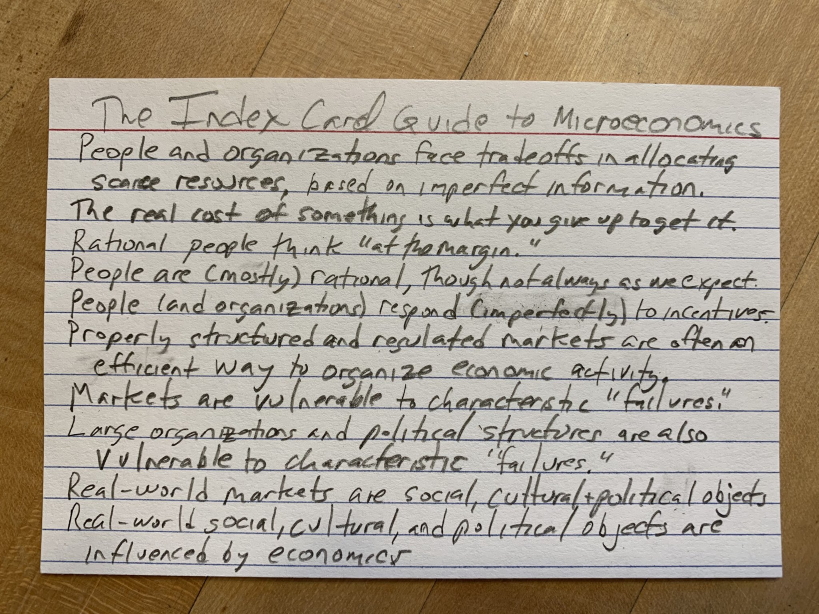 The Index Card Guide to Microeconomics
People and organizations face tradeoffs in allocating
scarce resources, based on imperfect information.
The real cost of something is what you give up to get it.
Rational people think "at the margin."
People are (mostly) rational, though not always as we expect.
People (and organizations) respond (imperfectly) to incentives.
Properly structured and regulated markets are often an
efficient way to organize economic activity.
Markets are vulnerable to characteristic "failures."
Large organizations and political structures are also
vulnerable to characteristic "failures."
Real-world markets are social, cultural + political objects
Real-world social, cultural, and political objects are
influenced by economics